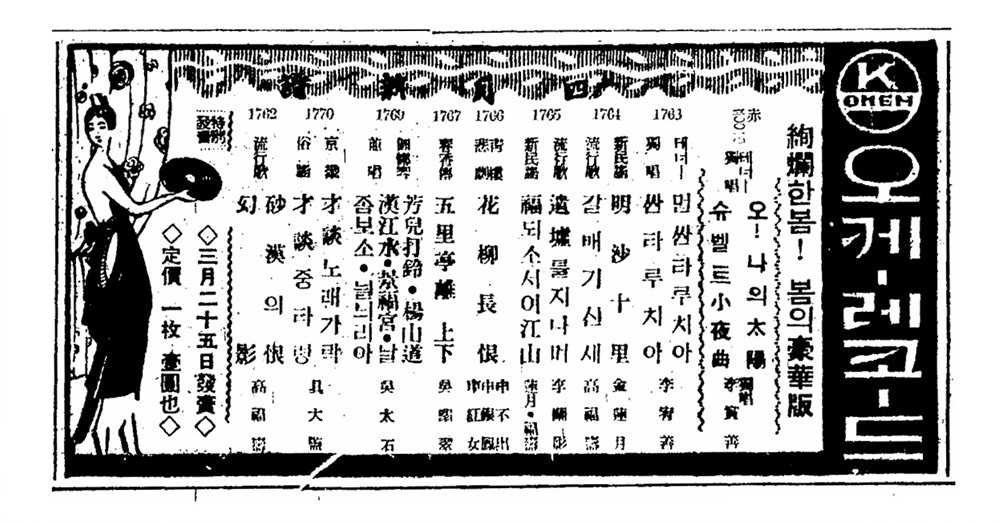 K
OKEH
오-케-레코-드
絢爛한봄! 봄의豪華版
四月新譜
赤
테너-
獨唱
오-나의太陽
슈벨트小夜曲
獨唱
李寅善
1763
테너-
獨唱
먼싼타루치아
싼타루치아
李寅善
1764
新民謠
明沙十里
金蓮月
流行歌
갈매기신세
高福壽
1765
流行歌
遺墟를지나며
李蘭影
新民謠
福되소서이江山
蓮月・福壽
1766
靑樓悲劇
花柳長恨
申不出
申銀鳳
申紅女
1767
春香傳
五里亭離 上下
吳翡翠
1769
伽倻琴
芳兒打鈴・楊山道
龍唱
漢江水・景福宮・날
좀보소・늴늬리아
吳太石
1770
京畿
才談노래가락
俗謠
才談중타령
具大監
1762
流行歌
砂漠의恨
幻影
高福壽
特別發賣
◇三月二十五日發賣◇
◇定價 一枚 壹圓也◇